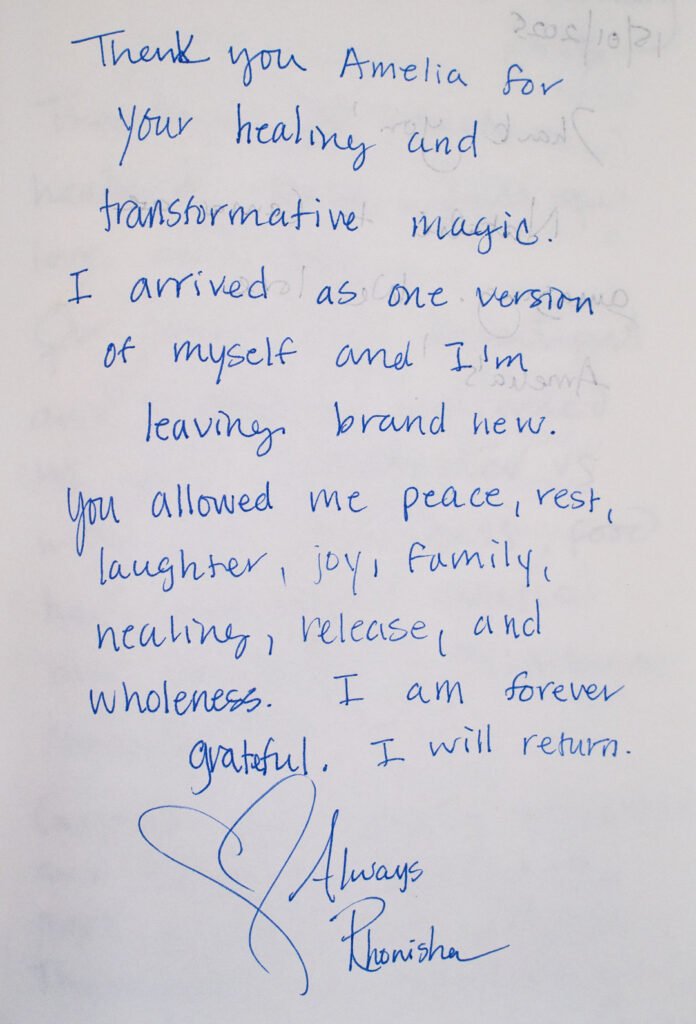 Thank you Amelia for
your healing and
transformative magic.
I arrived as one version
of myself and I'm
leaving brand new.
You allowed me peace, rest,
laughter, joy, family,
healing, release, and
wholeness. I am forever
grateful. I will return.
Always
Rhonisha